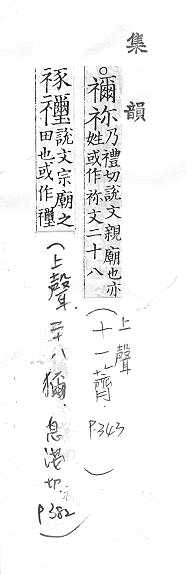 集韻
禰祢
乃禮切說文親廟也亦
姓或作祢文二十八
(上聲
十一薺. P.343)
說文宗廟之
田也或作
(上聲. 二十八獮. 息淺切.
P382